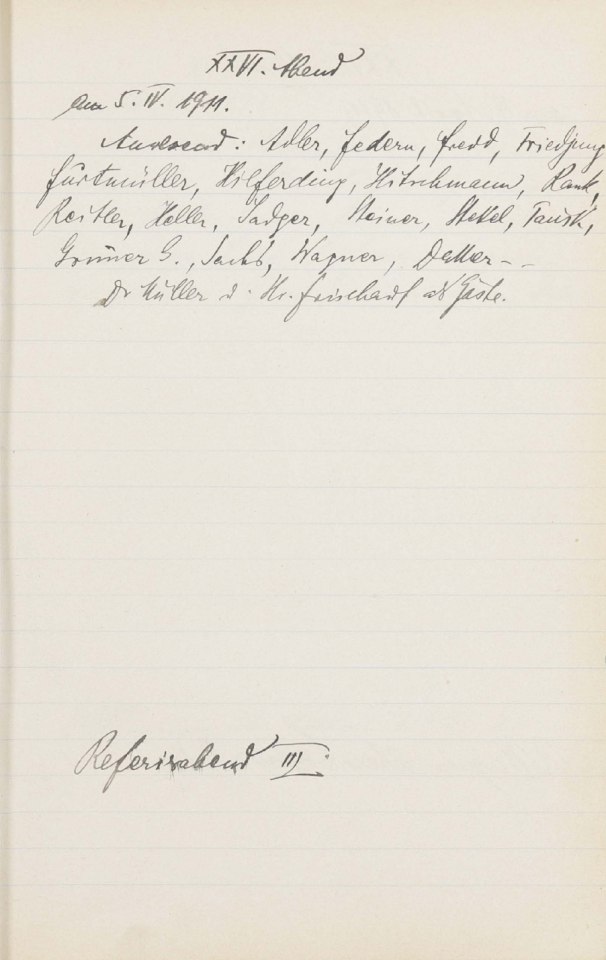 XXVI. Abend
am 5. IV. 1911.
Anwesend: Adler, Federn, Freud, Friedjung
Furtmüller, Hilferding, Hitschmann, Rank,
Reitler, Heller, Sadger, Steiner, Stekel, Tausk,
Grüner G., Sachs, Wagner,
Dr Müller u. Hr. Frischauf als Gäste.
Referierabend III.